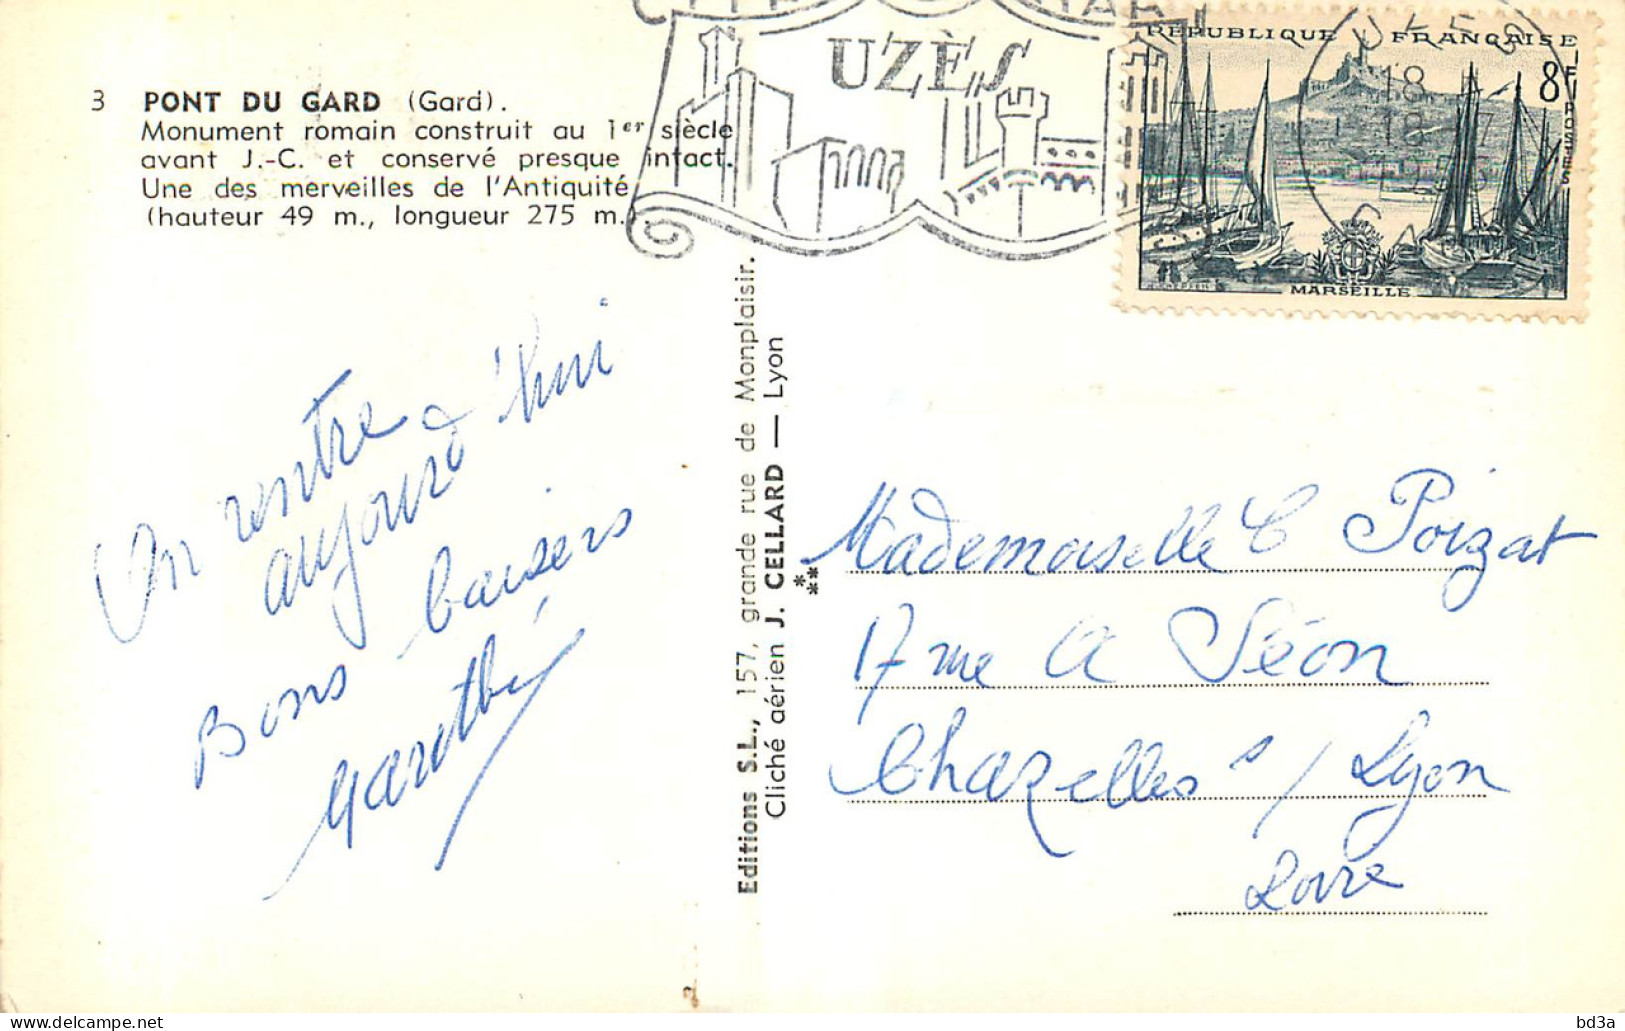 3 PONT DU GARD (Gard).
Monument romain construit au 1er siècle
avant J.-C. et conservé presque intact.
Une des merveilles de l'Antiquité
(hauteur 49 m., longueur 275 m.).
UZÈS
RÉPUBLIQUE FRANÇAISE
8F
POSTES
MARSEILLE
18
On rentre
aujourd'hui
Bons baisers
Editions S.L., 157, grande rue de Monplaisir.
Cliché aérien J. CELLARD — Lyon
Mademoiselle C Poizat
17 rue A Séon
Chazelles s/ Lyon
Loire
delcampe.net
bd3a